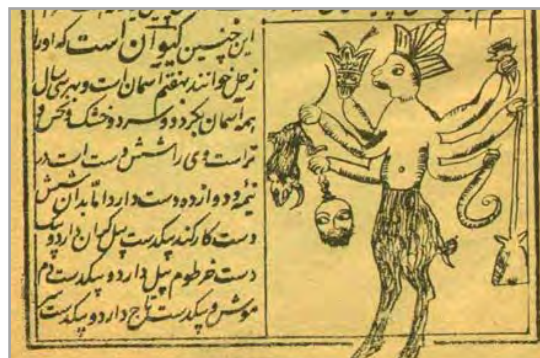 این چنین کیوان است که اورا
زحل خوانند بهفتم آسمان است و بهر سی سال
همه آسمان بگردد و سرد و خشک و نحس و
تراست وی را شش دست است در
نیمه و دوازده دست دارد اما بدان شش
دست کار کند یکدست دارد و یک
دست خرطوم پیل دارد و یکدست دم
موش و یکدست تاج دارد و یکدست سر